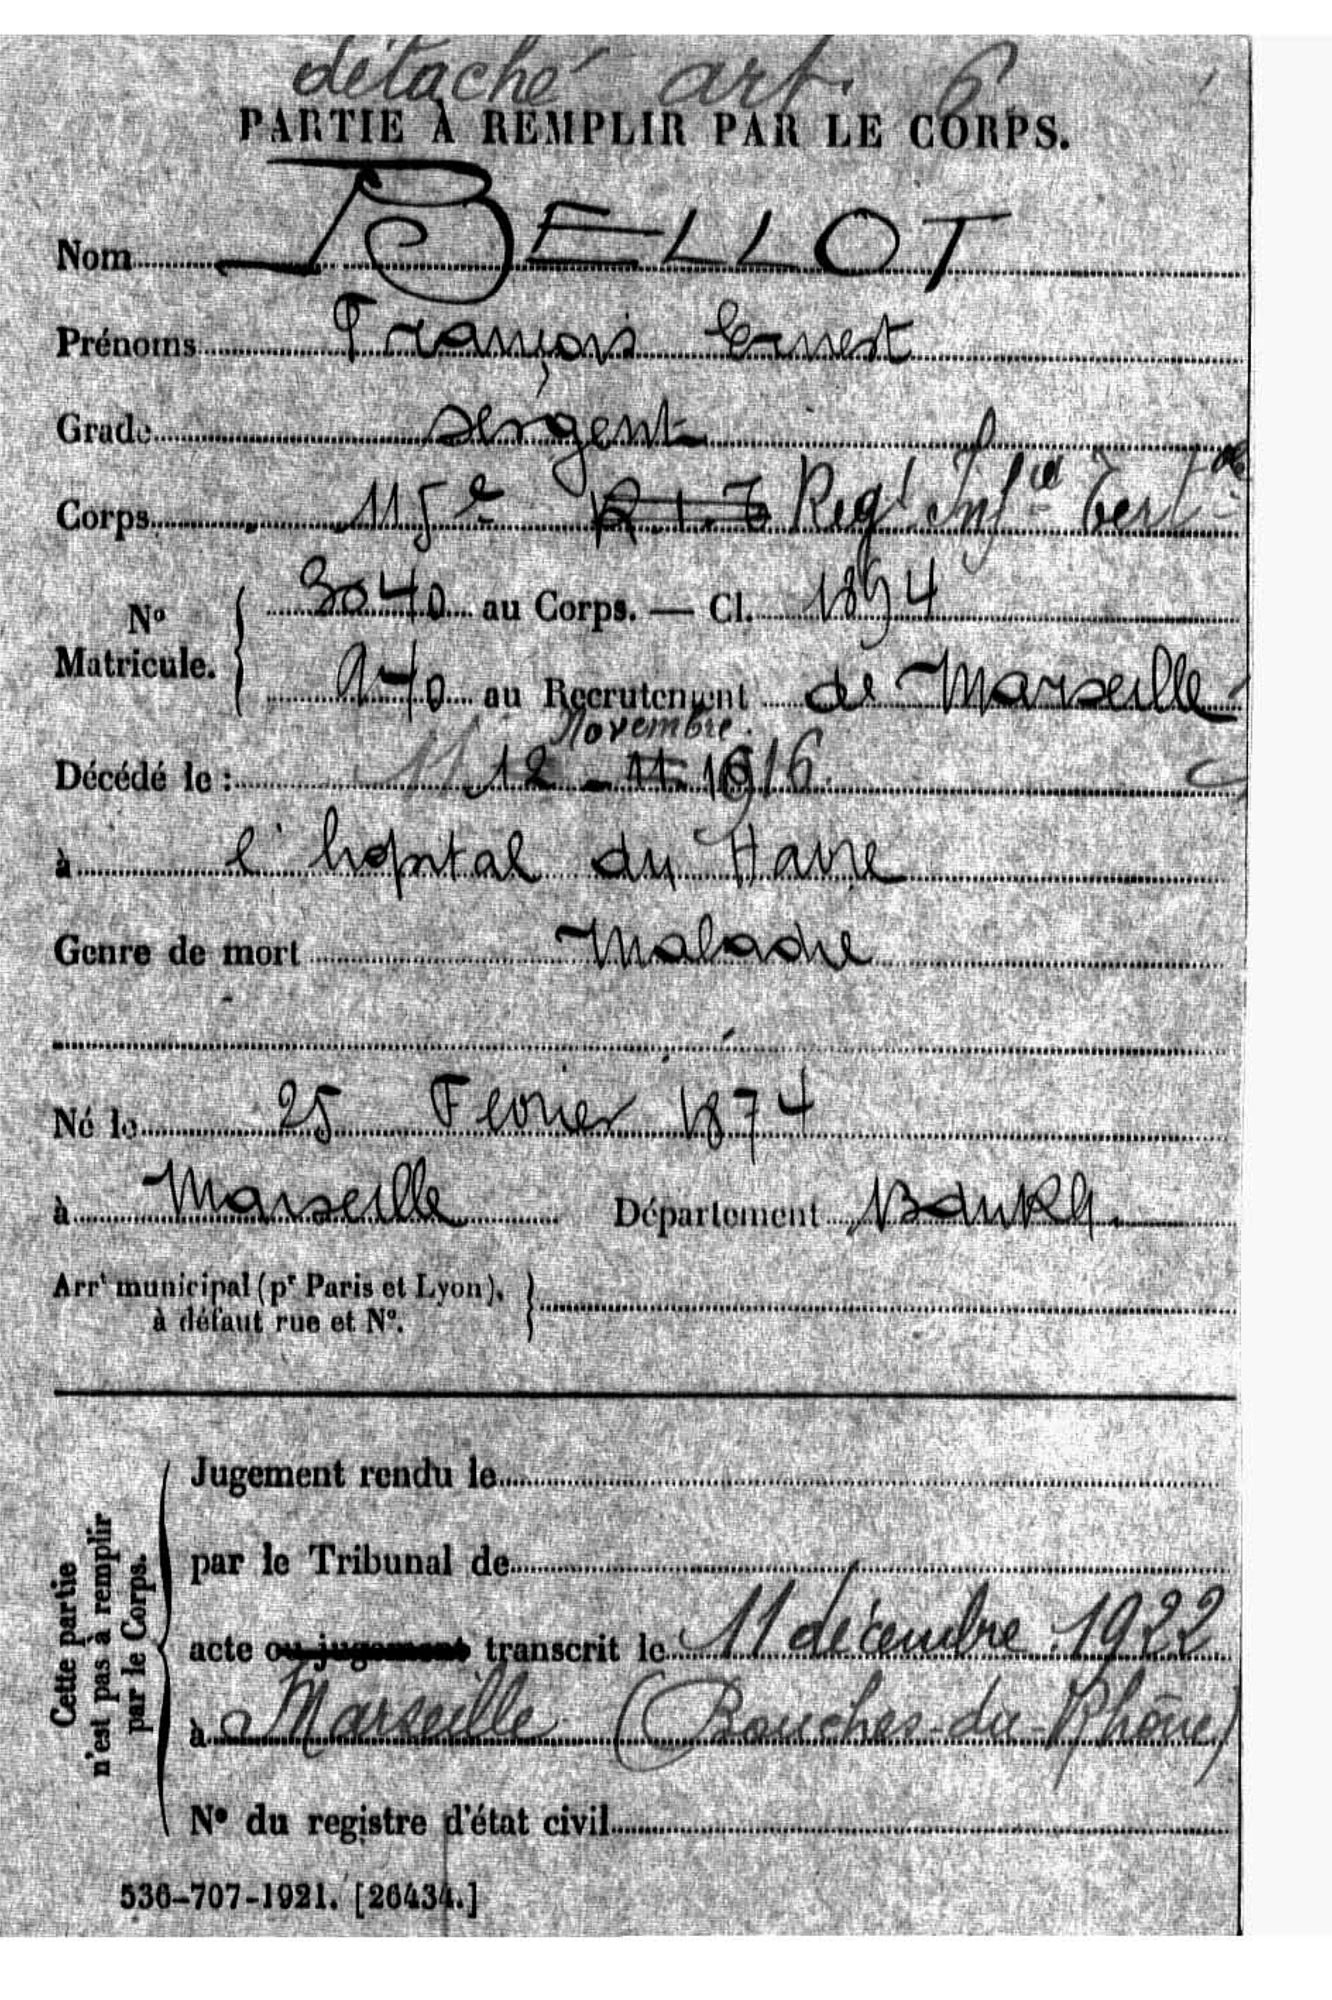 détaché art. 6
PARTIE À REMPLIR PAR LE CORPS.
Nom BELLOT
Prénoms François Ernest
Grade sergent
Corps 115e R.I.T Regt Infie Tertale
No Matricule. { 3040 au Corps. — Cl. 1894
940 au Recrutement de Marseille
Novembre
Décédé le : 11 12 - 11. 1916.
à l'hopital du Havre
Genre de mort Maladie
Né le 25 Fevrier 1874
à Marseille Département B du Rh.
Arrt municipal (pr Paris et Lyon), à défaut rue et No. }
Cette partie n'est pas à remplir par le Corps.
Jugement rendu le
par le Tribunal de
acte ou jugement transcrit le 11 décembre 1922
à Marseille (Bouches-du-Rhône)
No du registre d'état civil
536-707-1921. [26434.]